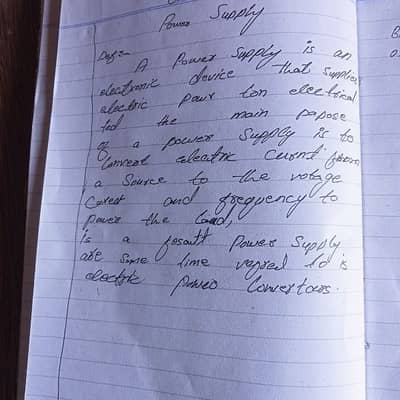 Power Supply
Defen
A Power Supply is an
electronic device that supplies
electric powr ton electrical
lod the main papose
of a power Supply is to
Convert electric Curent from
a Source to the votage
Curent and frequency to
power the load,
is a Power Supply
are Some time to is
electric power Convertours.